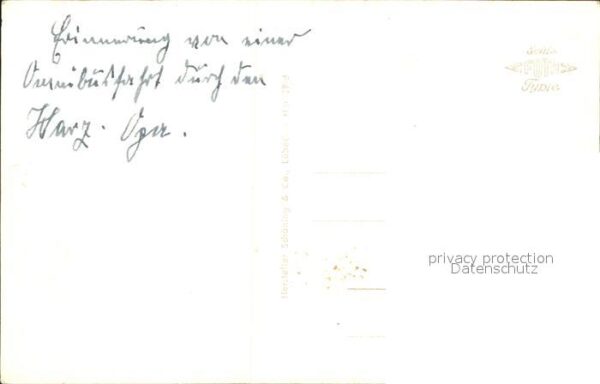 Erinnerung von einer
Omnibusfahrt durch den
Harz. Opa.
Hersteller Schöning & Co., Lübeck
privacy protection
Datenschutz